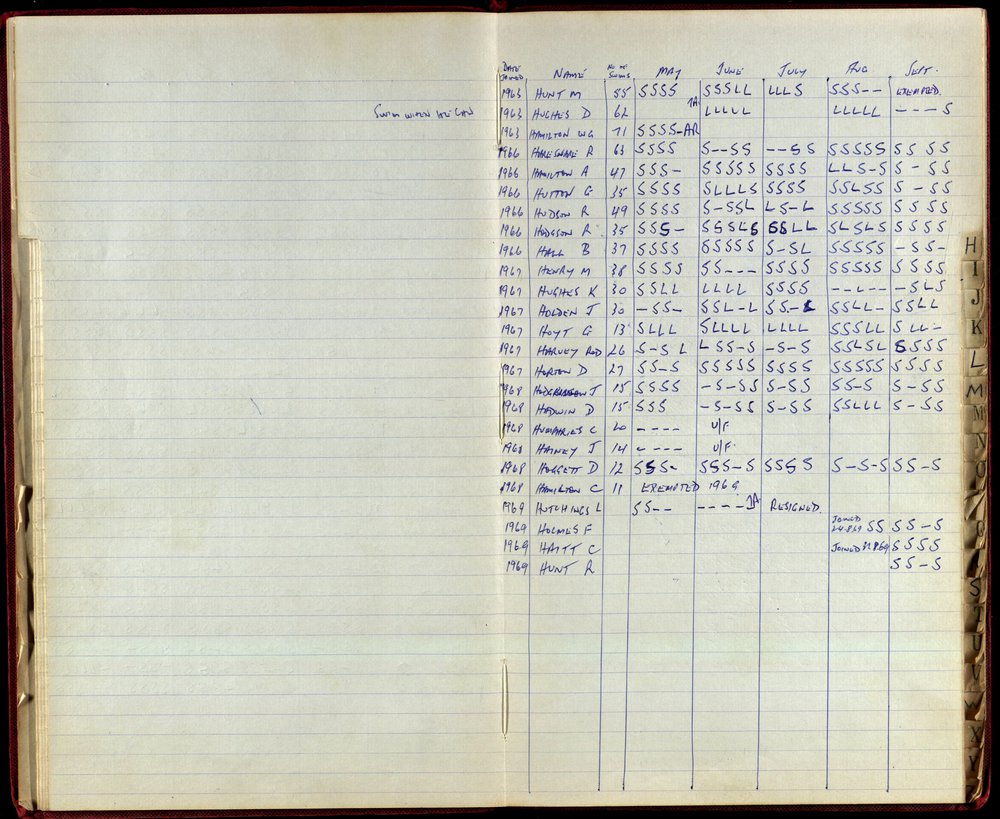 DATE JOINED NAME NO OF SWIMS MAY JUNE JULY AUG SEPT.
1963 HUNT M 55 SSSS SSSLL LLLS SSS-- EXEMPTED.
SWIM WHEN HE CAN 1963 HUGHES D 62 1A LLLLL LLLLL ----S
1963 HAMILTON WG 71 SSSS-AR
1966 HARESNAPE R 63 SSSS S--SS --SS SSSSS SSSS
1966 HAMILTON A 47 SSS- SSSSS SSSS LLS-S S-SS
1966 HUTTON G 35 SSSS SLLLS SSSS SSLSS S-SS
1966 HUDSON R 49 SSSS S-SSL LS-L SSSSS SSSS
1966 HODGSON R 35 SSS- SSSLS SSLL SLSLS SSSS
1966 HALL B 37 SSSS SSSSS S-SL SSSSS -SS-
1967 HENRY M 38 SSSS SS--- SSSS SSSSS SSSS
1967 HUGHES K 30 SSLL LLLL SSSS --L-- -SLS
1967 HOLDEN J 30 -SS- SSL-L SS-L SSLL- SSLL
1967 HOYT G 13 SLLL SLLLL LLLL SSSLL SLL-
1967 HARVEY ROD 26 S-SL LSS-S -S-S SSLSL SSSS
1967 HORTON D 27 SS-S SSSSS SSSS SSSSS SSSS
1968 J 15 SSSS -S-SS S-SS SS-S S-SS
1968 HADWIN D 15 SSS -S-SS S-SS SSLLL S-SS
1968 HUMPHRIES C 20 ---- U/F
1968 HAINEY J 14 ---- U/F.
1968 HOGGETT D 12 SSS- SSS-S SSSS S-S-S SS-S
1968 HAMILTON C 11 EXEMPTED 1969
1969 HUTCHINGS L SS-- ----1A RESIGNED.
1969 HOLMES F JOINED 24.8.69 SS SS-S
1969 HAITT C JOINED SSSS
1969 HUNT R SS-S
H
I
J
K
L
M
N
O
S
T
U
V
W
X
Y